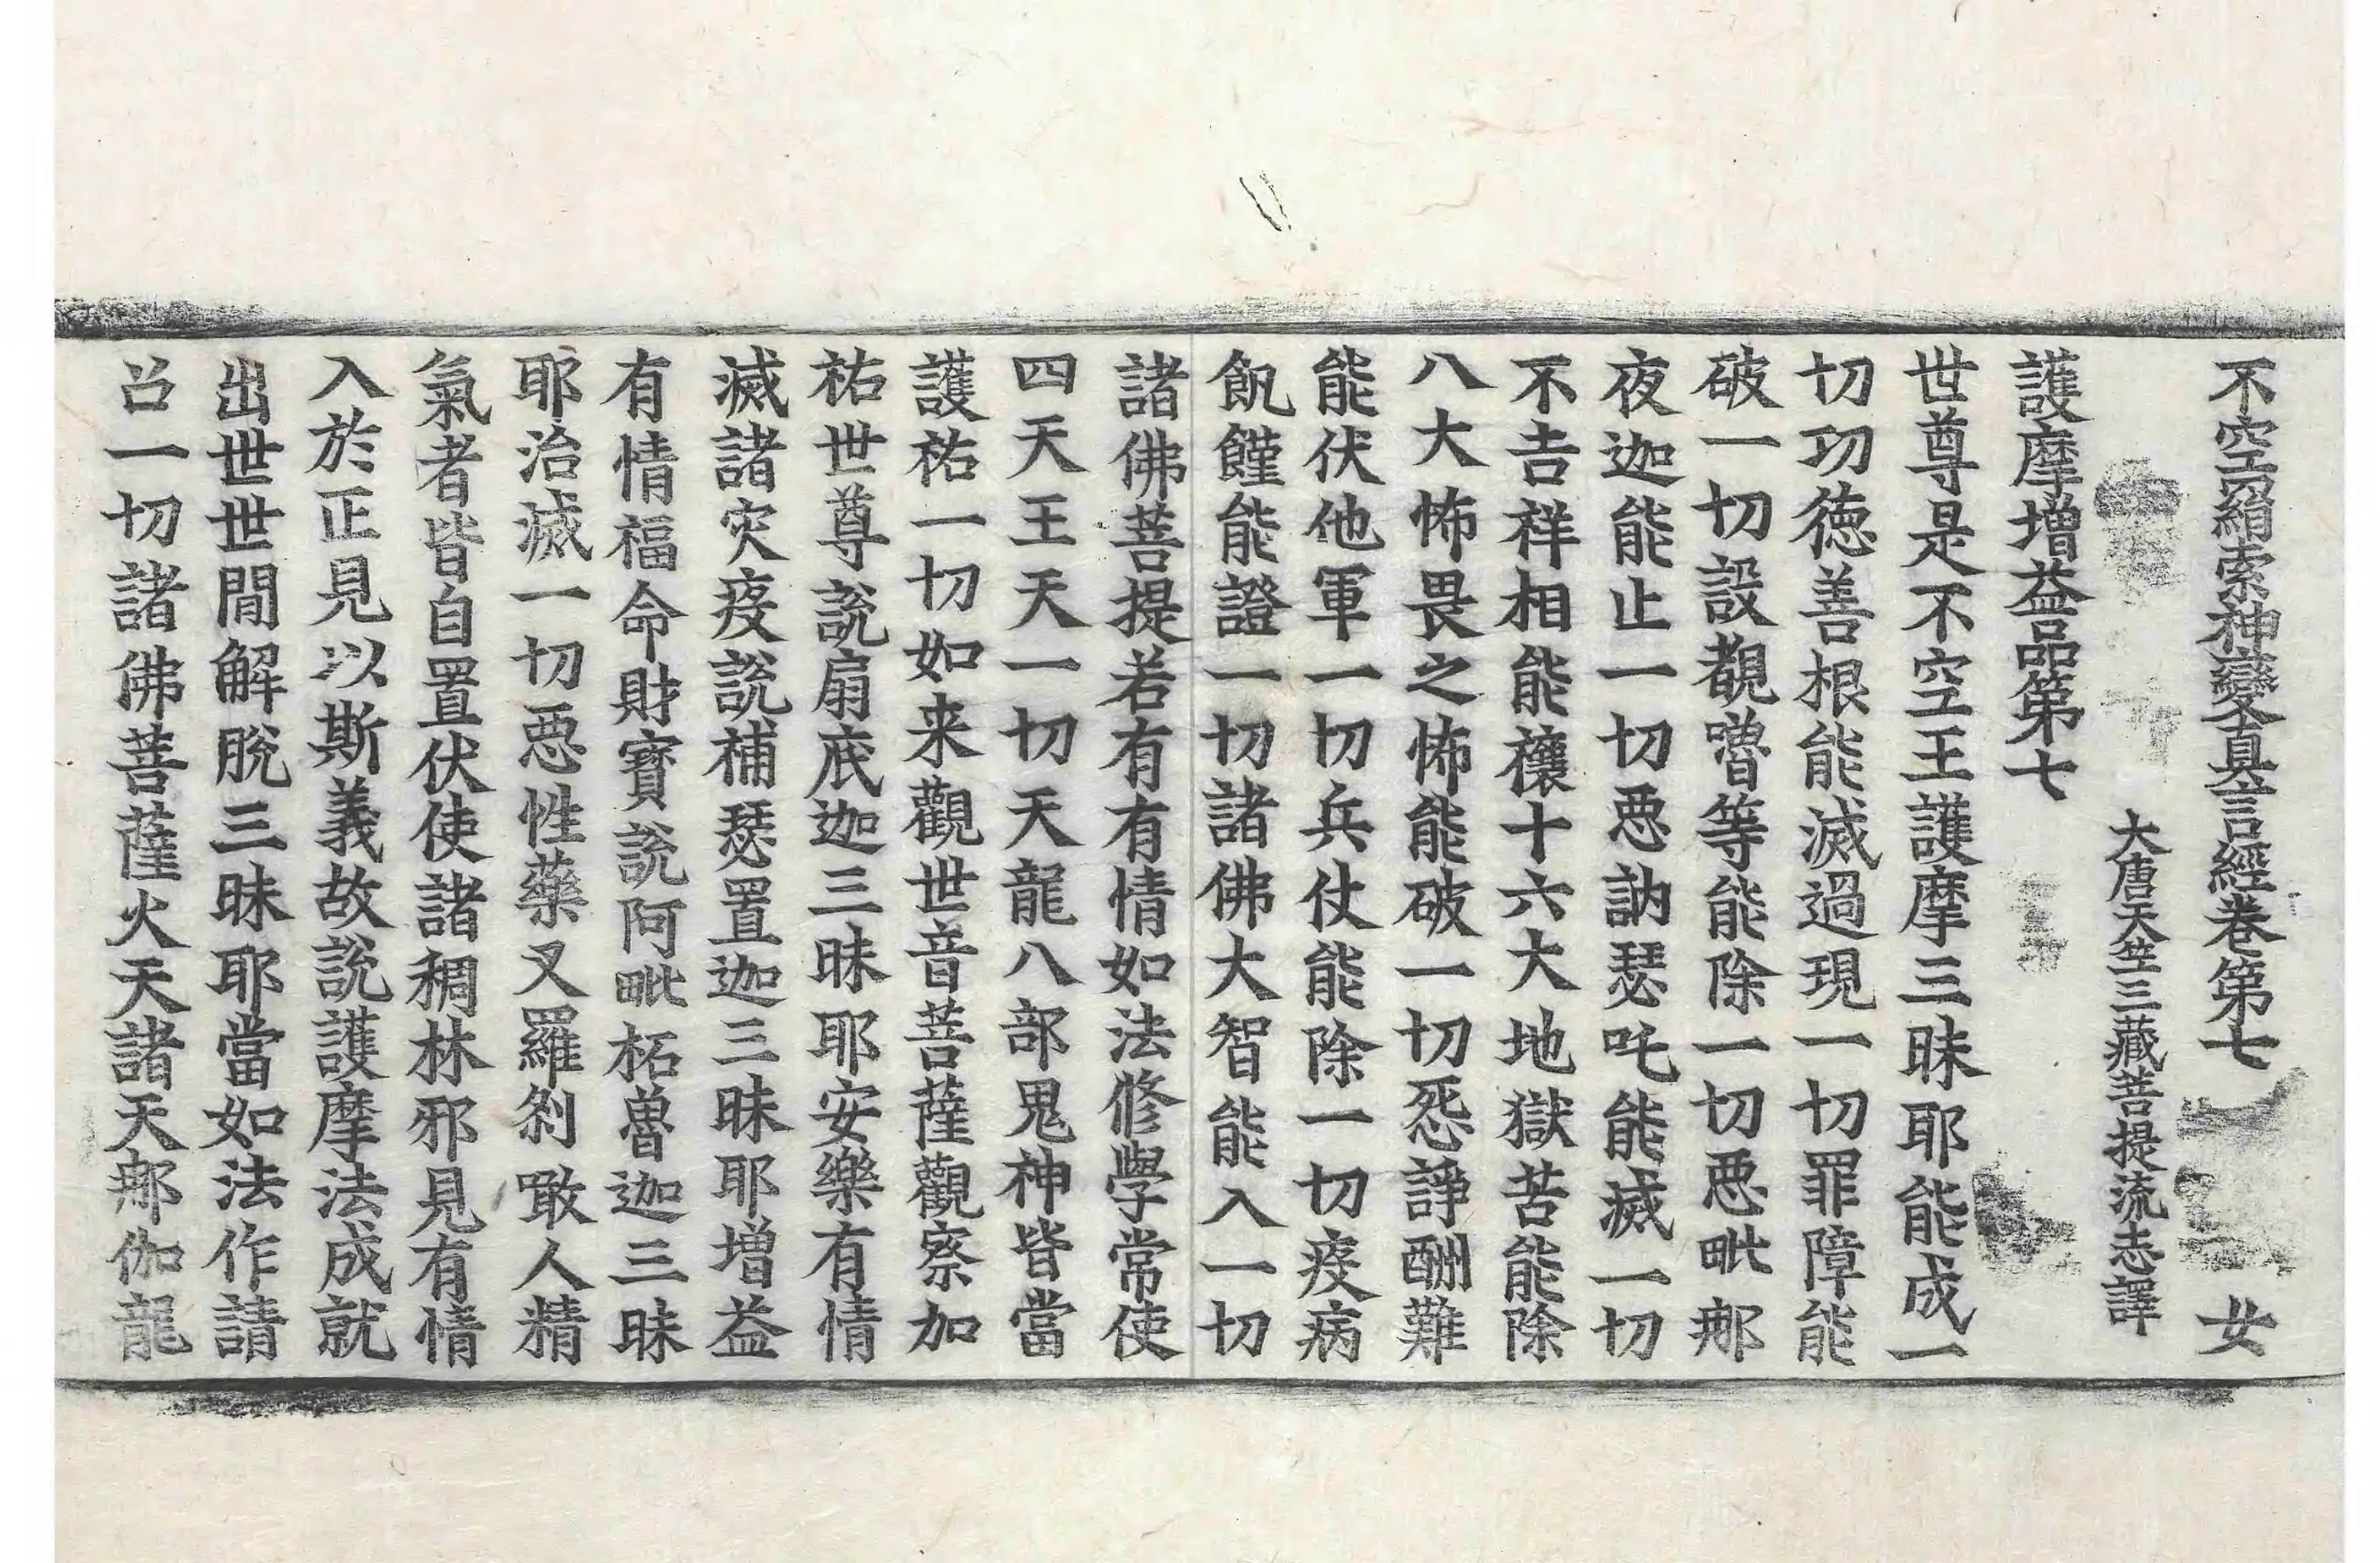 不空羂索神變真言經卷第七 女
大唐天竺三藏菩提流志譯
護摩增益品第七
世尊是不空王護摩三昧耶能成一
切功德善根能滅過現一切罪障能
破一切設覩嚕等能除一切惡毗那
夜迦能止一切惡訥瑟吒能滅一切
不吉祥相能禳十六大地獄苦能除
八大怖畏之怖能破一切怨諍酬難
能伏他軍一切兵仗能除一切疫病
飢饉能證一切諸佛大智能入一切
諸佛菩提若有有情如法修學常使
四天王天一切天龍八部鬼神皆當
護祐一切如来觀世音菩薩觀察加
祐世尊說扇底迦三昧耶安樂有情
滅諸灾疫說補瑟置迦三昧耶增益
有情福命財寶說阿毗柘嚕迦三昧
耶治滅一切惡性藥叉羅剎噉人精
氣者皆自置伏使諸稠林邪見有情
入於正見以斯義故說護摩法成就
出世世間解脫三昧耶當如法作請
召一切諸佛菩薩火天諸天那伽龍